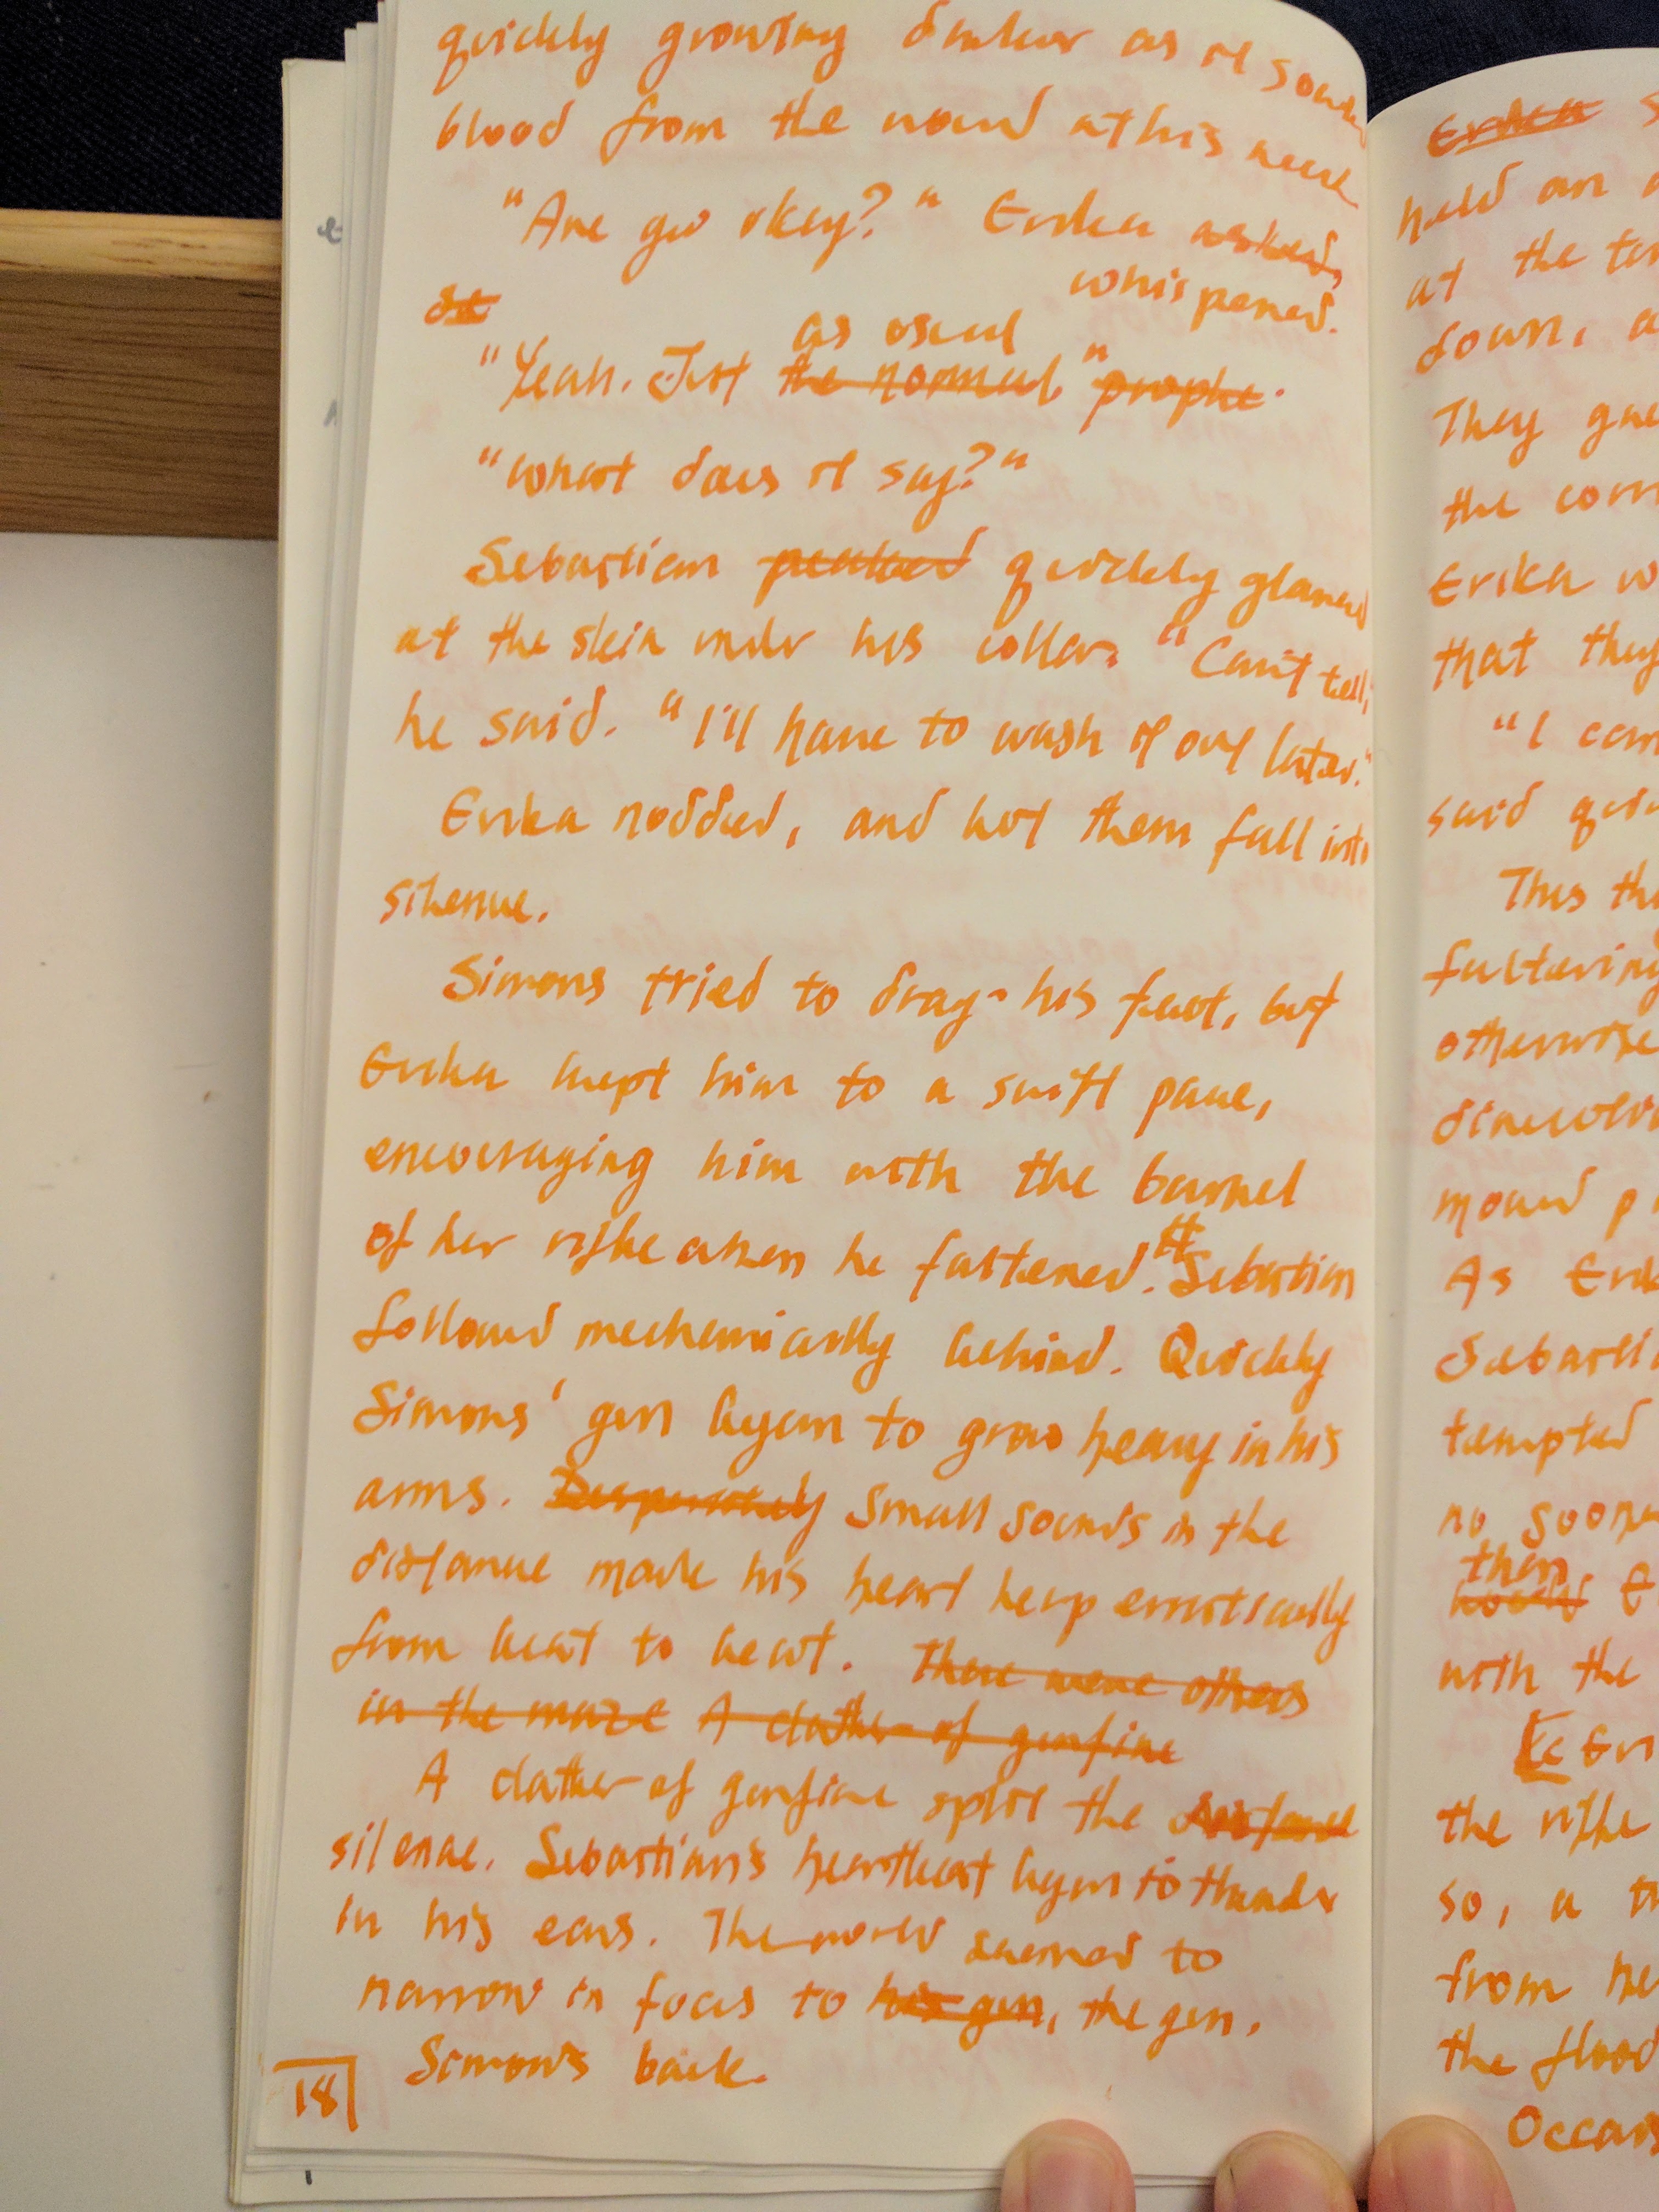 quickly growing darker as it soaked
blood from the wound at his neck
"Are you okay?" Erika asked,
whispered.
as usual
"Yeah. Just the normal." prophe.
"What does it say?"
Sebastian peaked quickly glanced
at the skin under his collar. "Can't tell,"
he said. "I'll have to wash it out later."
Erika nodded, and let them fall into
silence.
Simons tried to drag his feet, but
Erika kept him to a swift pace,
encouraging him with the barrel
of her rifle when he faltered. Sebastian
followed mechanically behind. Quickly
Simons' gun began to grow heavy in his
arms. Desperately Small sounds in the
distance made his heart leap erratically
from beat to beat. There were others
in the maze A clatter of gunfire
A clatter of gunfire split the distance
silence. Sebastian's heartbeat began to thunder
in his ears. The world seemed to
narrow in focus to his gun, the gun,
Simons back.
18
Erika
held an
at the
down,
They
the
Erika
that they
"I
said
This
faltering
otherwise
mound
As
tempted
no sooner
than
with the
the rifle
so, a
from
the flood